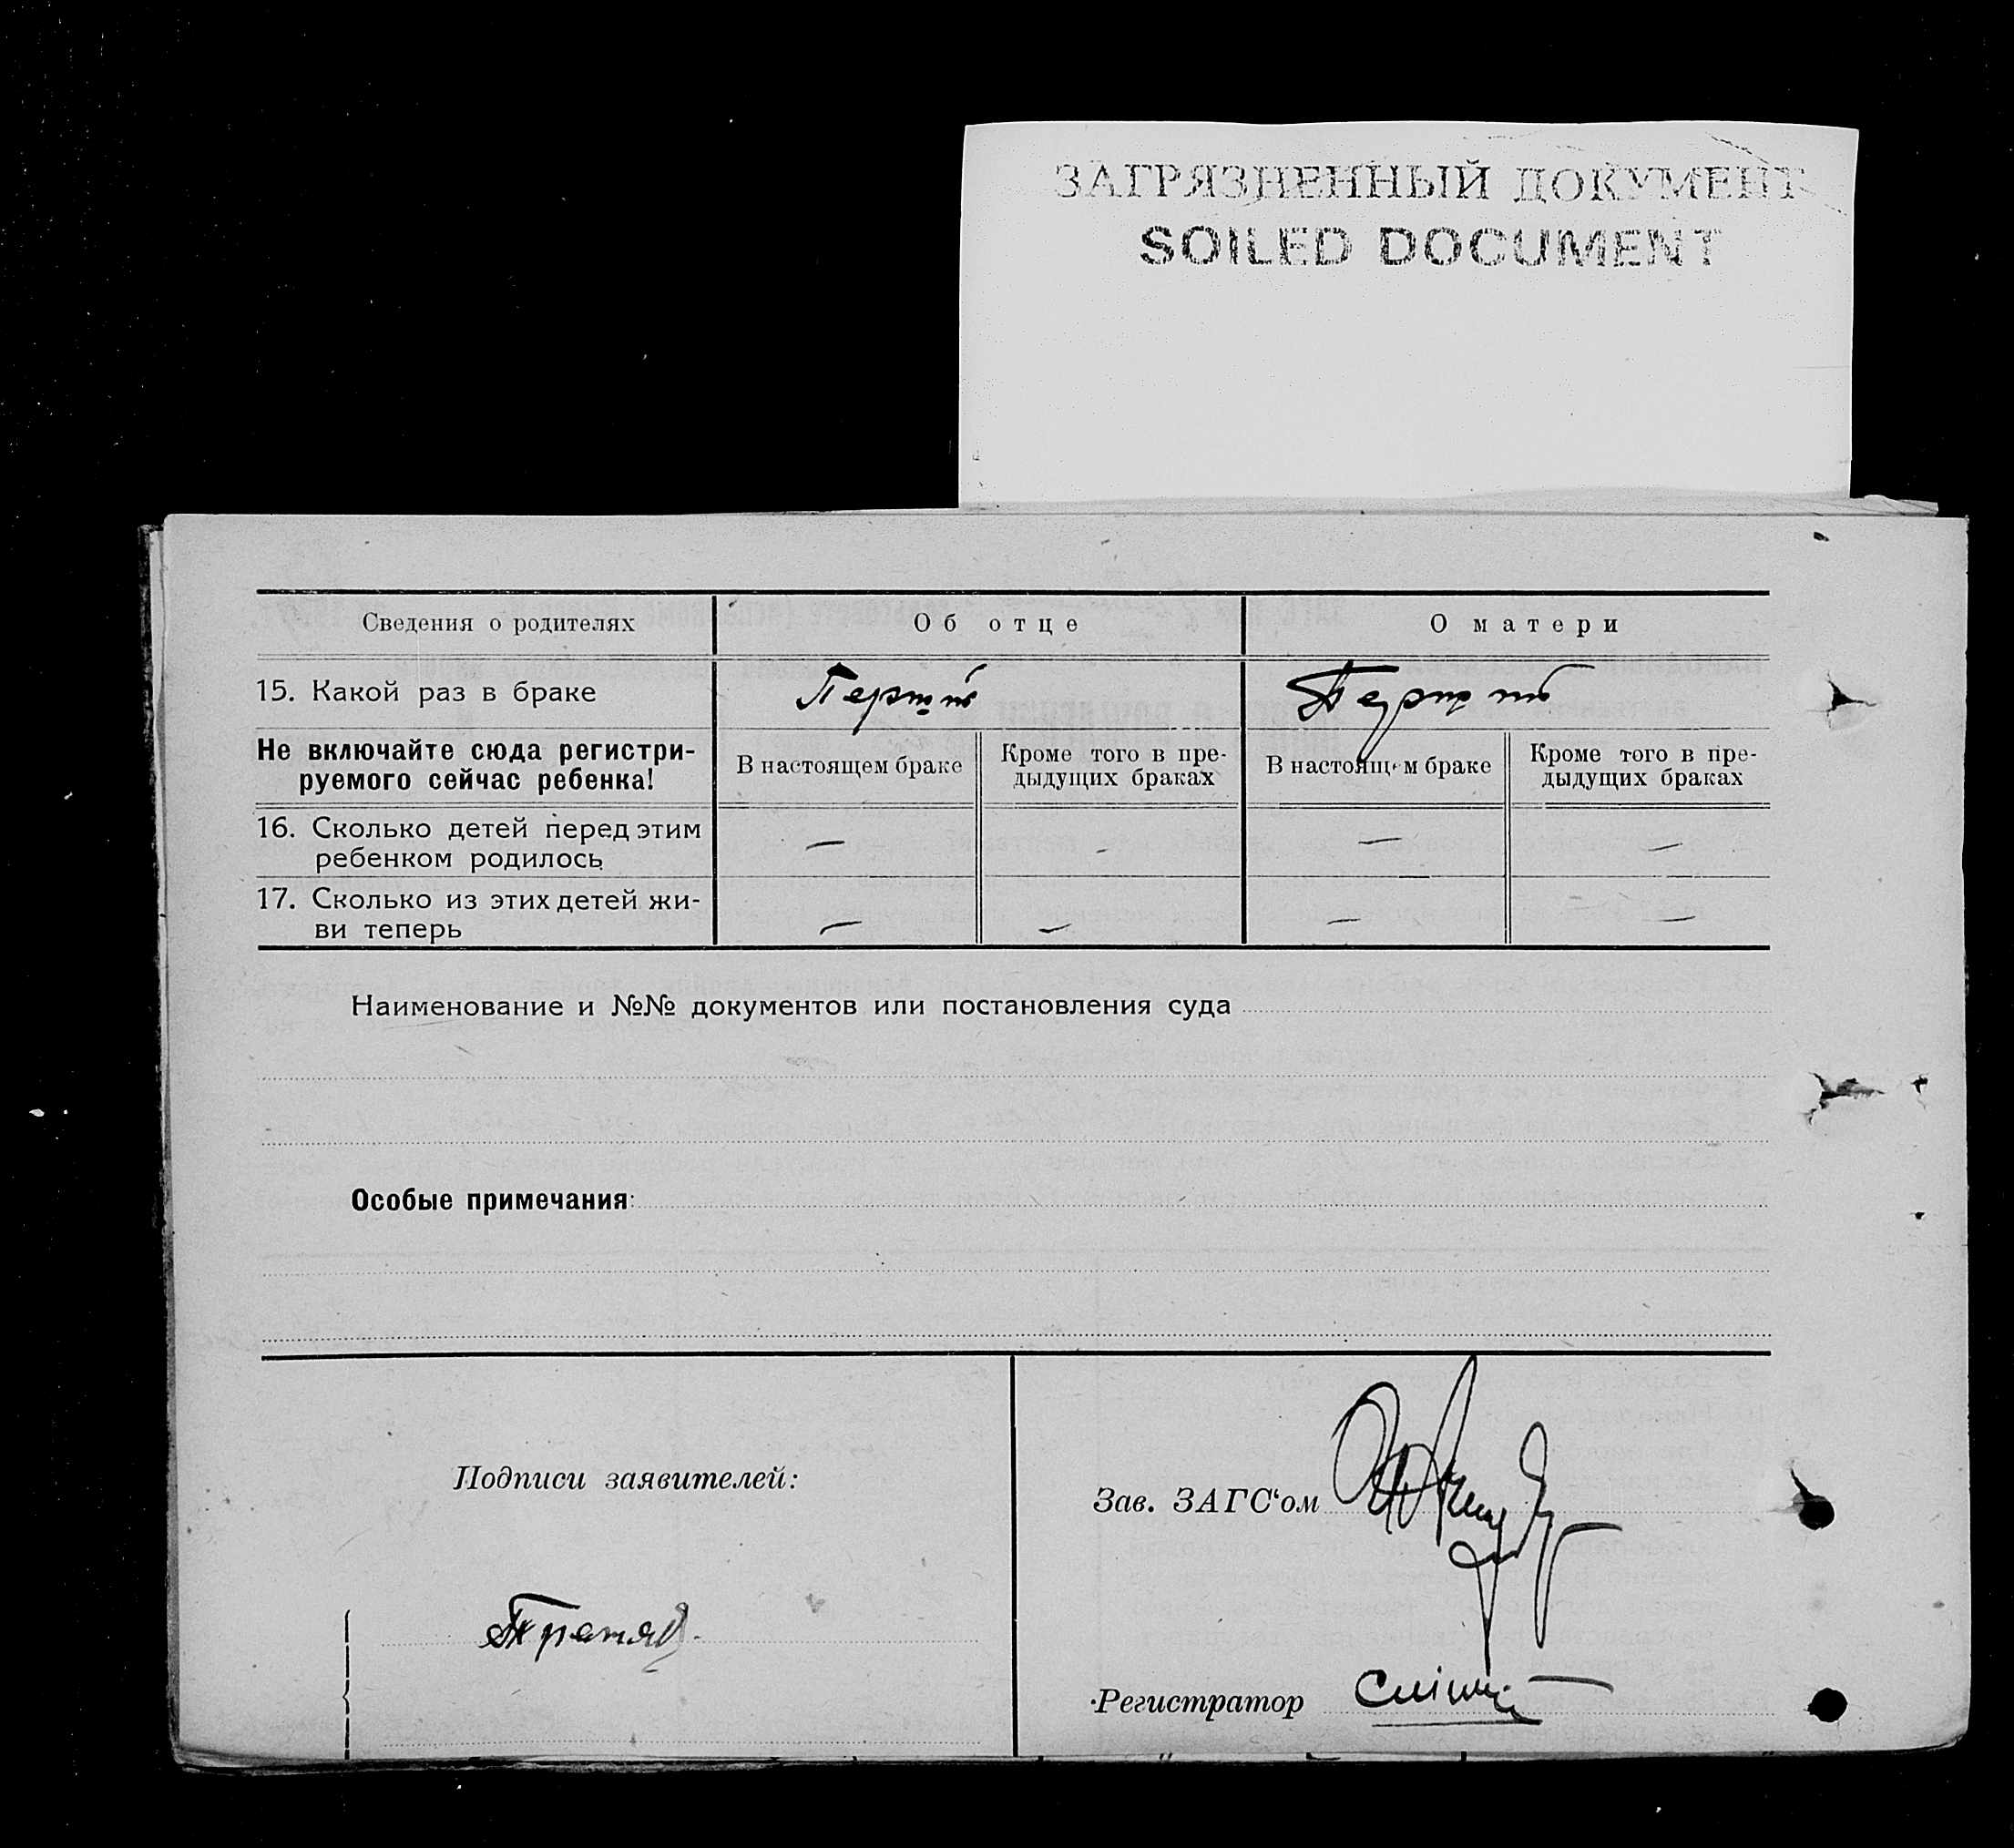 ЗАГРЯЗНЕННЫЙ ДОКУМЕНТ
SOILED DOCUMENT
Сведения о родителях Об отце О матери
15. Какой раз в браке
Не включайте сюда регистри-
руемого сейчас ребенка!
В настоящем браке
Кроме того в пре-
дыдущих браках
В настоящем браке
Кроме того в пре-
дыдущих браках
16. Сколько детей перед этим
ребенком родилось
— — — —
17. Сколько из этих детей жи-
ви теперь
— — — —
Наименование и №№ документов или постановления суда
Особые примечания:
Подписи заявителей:
Зав. ЗАГС‘ом
Регистратор